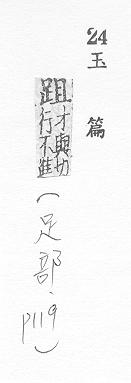 24
玉篇
跙
才與切
行不進
(足部·P119)